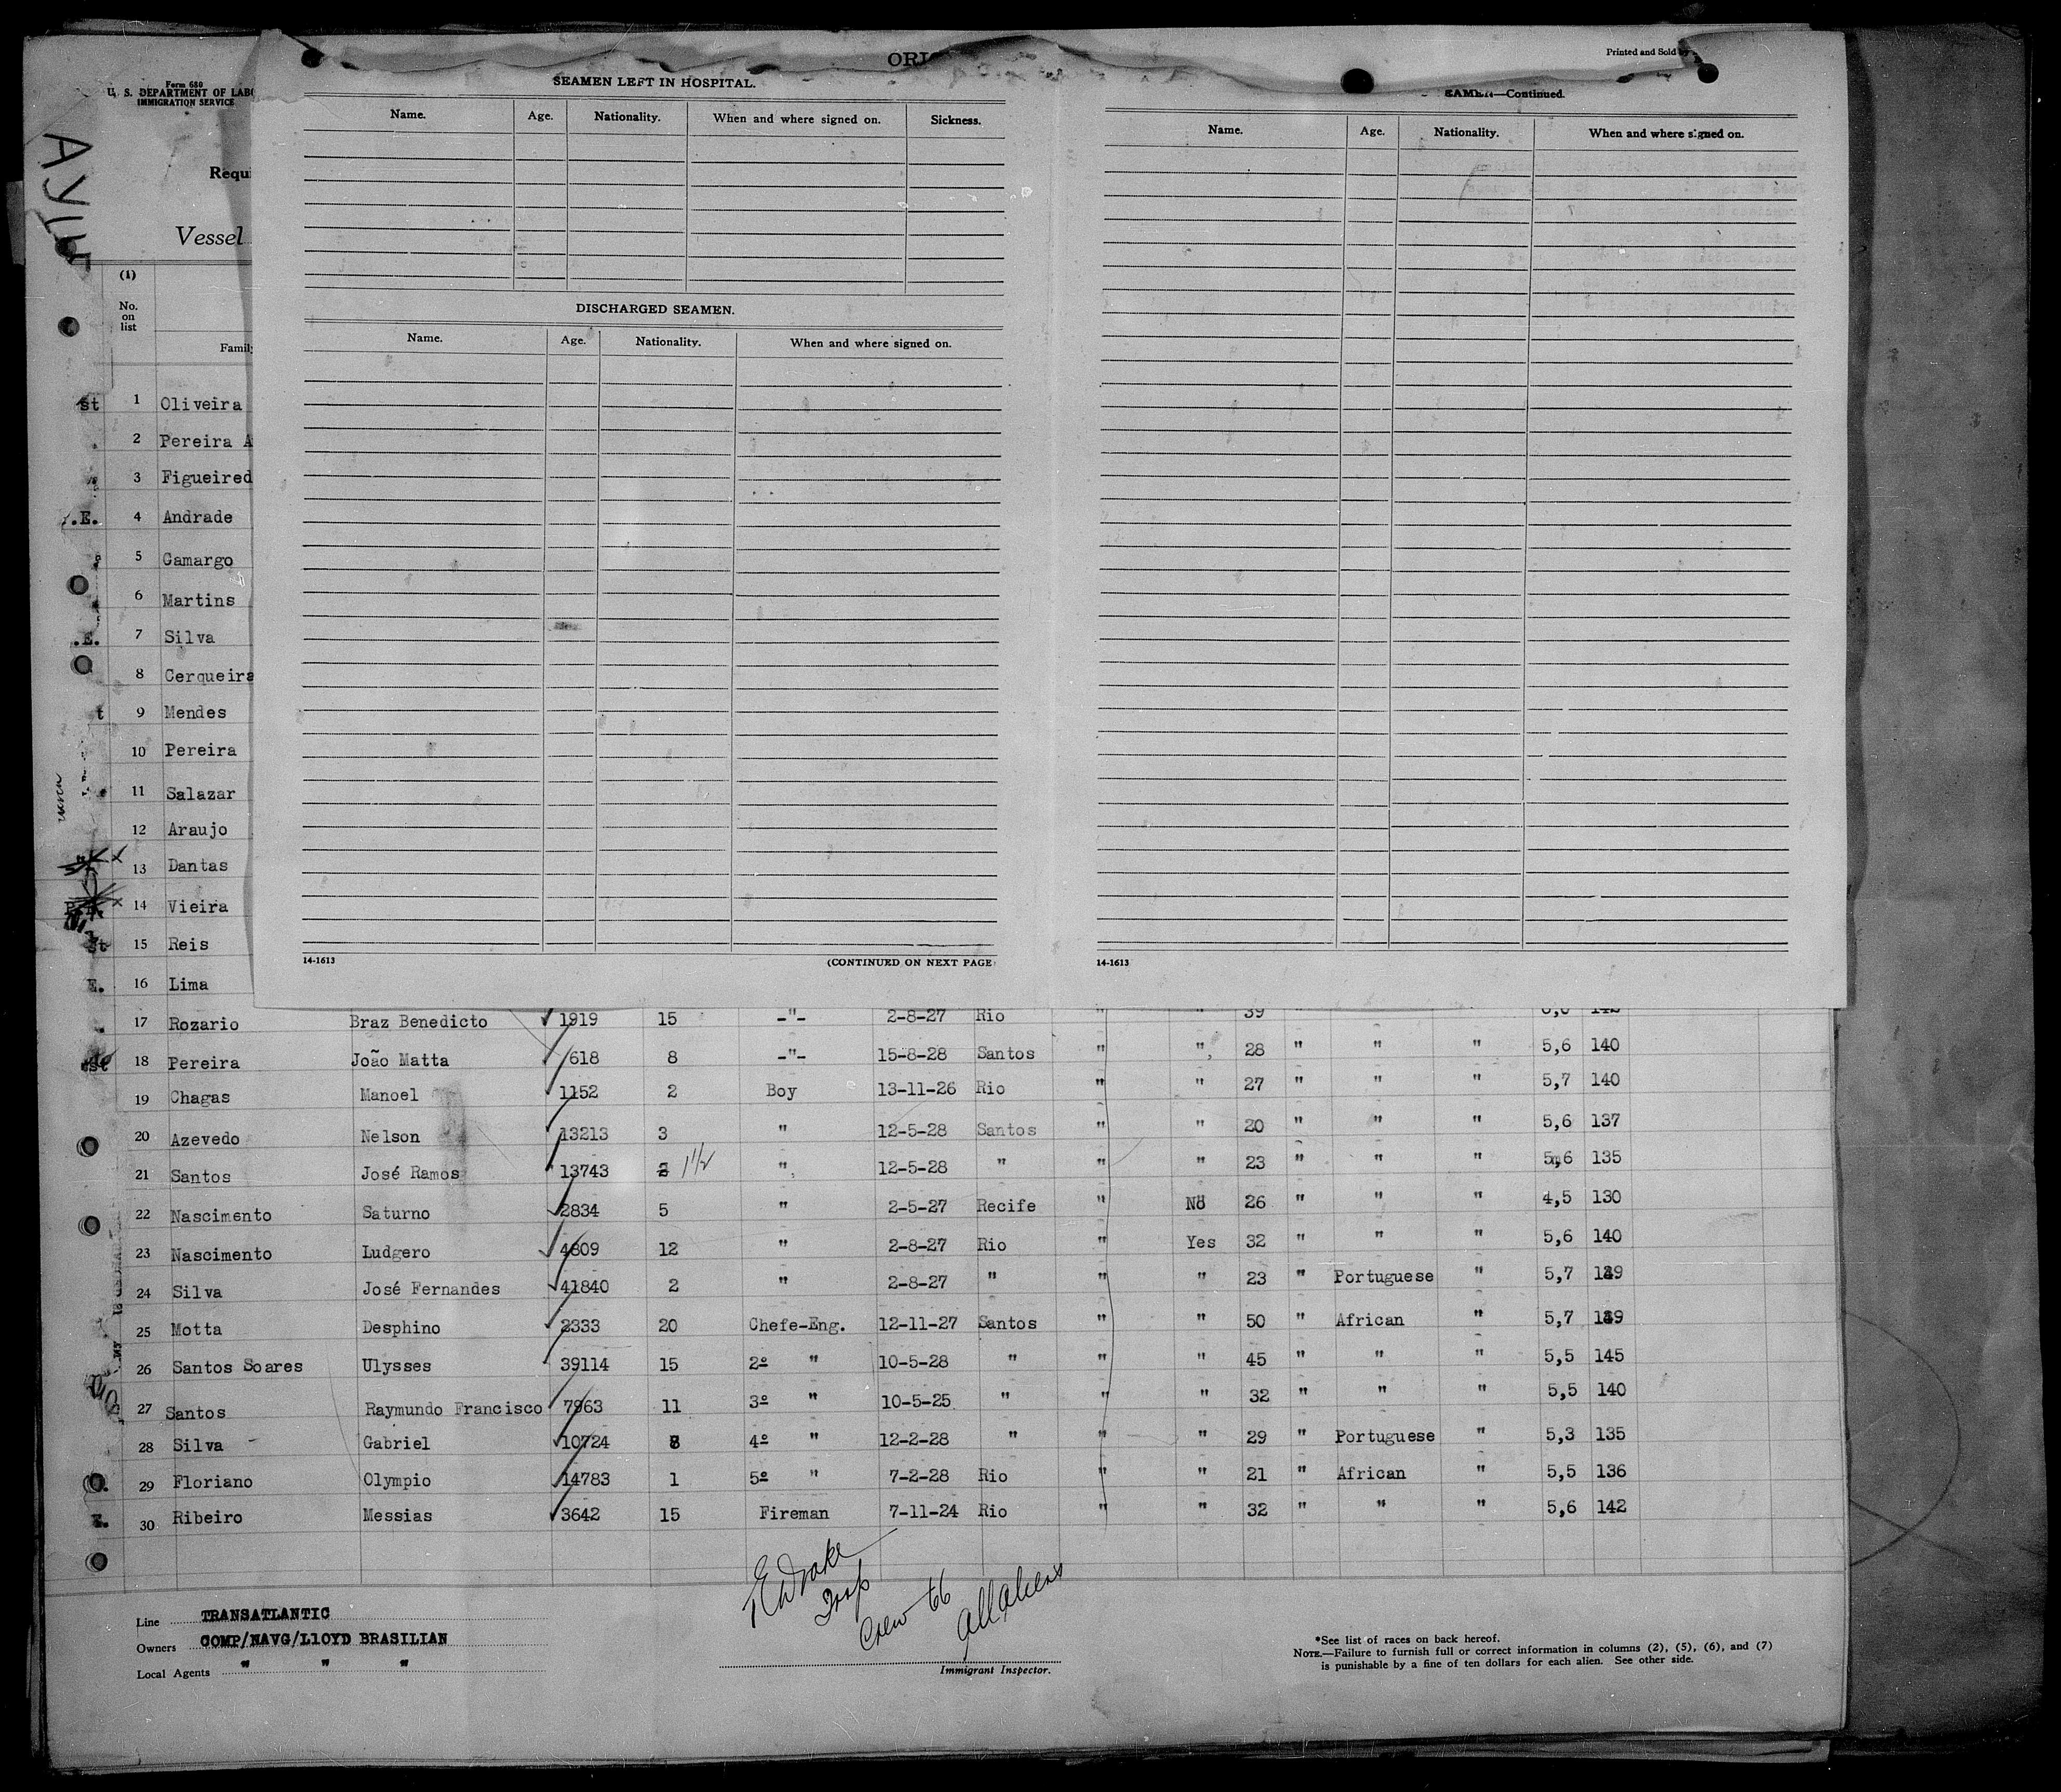 Form 680
U. S. DEPARTMENT OF LABO
IMMIGRATION SERVICE
Requi
Vessel
(1)
No. on list
Famil
ORIG
Printed and Sold by
SEAMEN LEFT IN HOSPITAL.
Name. Age. Nationality. When and where signed on. Sickness.
DISCHARGED SEAMEN.
Name. Age. Nationality. When and where signed on.
14-1613 (CONTINUED ON NEXT PAGE
SEAMEN—Continued.
Name. Age. Nationality. When and where signed on.
14-1613
st 1 Oliveira
2 Pereira A
3 Figueired
.E. 4 Andrade
5 Camargo
6 Martins
.E. 7 Silva
8 Cerqueira
t 9 Mendes
10 Pereira
11 Salazar
12 Araujo
13 Dantas
14 Vieira
st 15 Reis
E. 16 Lima
17 Rozario Braz Benedicto 1919 15 -"- 2-8-27 Rio " " 39
18 Pereira João Matta 618 8 -"- 15-8-28 Santos " " 28 " " " 5,6 140
19 Chagas Manoel 1152 2 Boy 13-11-26 Rio " " 27 " " " 5,7 140
20 Azevedo Nelson 13213 3 " 12-5-28 Santos " " 20 " " " 5,6 137
21 Santos José Ramos 13743 2 1½ " 12-5-28 " " " 23 " " " 5,6 135
22 Nascimento Saturno 2834 5 " 2-5-27 Recife " No 26 " " " 4,5 130
23 Nascimento Ludgero 4809 12 " 2-8-27 Rio " Yes 32 " " " 5,6 140
24 Silva José Fernandes 41840 2 " 2-8-27 " " " 23 " Portuguese " 5,7
25 Motta Desphino 2333 20 Chefe-Eng. 12-11-27 Santos " " 50 " African " 5,7
26 Santos Soares Ulysses 39114 15 2º " 10-5-28 " " " 45 " " " 5,5 145
27 Santos Raymundo Francisco 7963 11 3º " 10-5-25 " " " 32 " " " 5,5 140
28 Silva Gabriel 10724 8 4º " 12-2-28 " " " 29 " Portuguese " 5,3 135
29 Floriano Olympio 14783 1 5º " 7-2-28 Rio " " 21 " African " 5,5 136
30 Ribeiro Messias 3642 15 Fireman 7-11-24 Rio " " 32 " " " 5,6 142
Line TRANSATLANTIC
Owners COMP/NAVG/LlOYD BRASILIAN
Local Agents " " "
Drake
Insp
Crew 66
all aliens
Immigrant Inspector.
*See list of races on back hereof.
NOTE.—Failure to furnish full or correct information in columns (2), (5), (6), and (7)
is punishable by a fine of ten dollars for each alien. See other side.